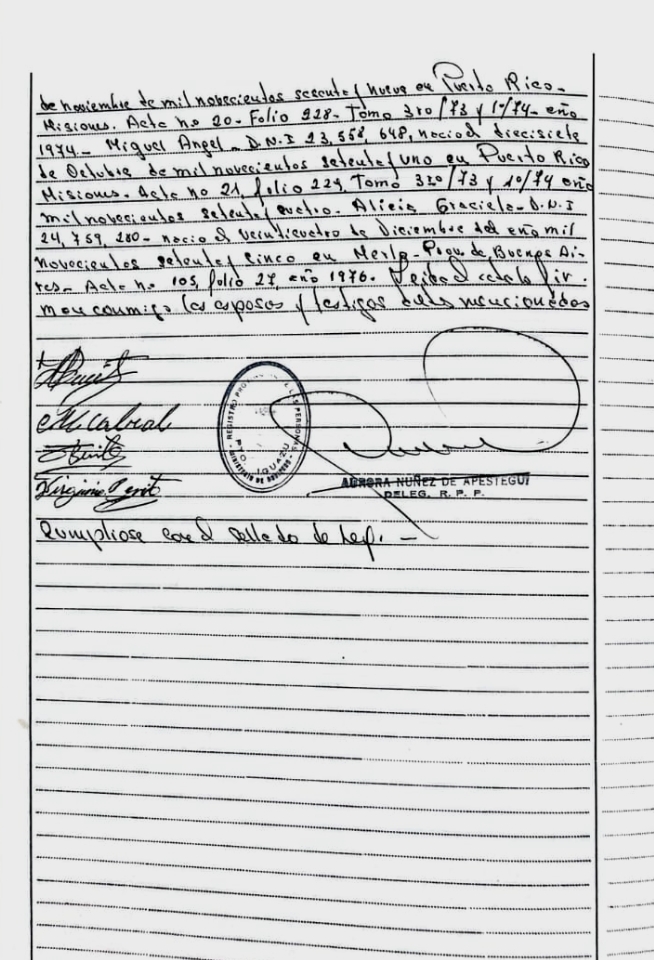 de noviembre de mil novecientos sesenta y nueve en Puerto Rico-
Misiones. Acta no 20- Folio 228- Tomo 3ro/73 y 1º/74- año
1974- Miguel Angel- D.N.I 23,558,648, nacio el diecisiete
de Octubre de mil novecientos setenta y uno en Puerto Rico
Misiones. Acta no 21, folio 229, Tomo 3ro/73 y 1º/74 año
mil novecientos setenta y cuatro. Alicia Graciela- D.N.I
24,759,280- nacio el veinticuatro de Diciembre del año mil
novecientos setenta y cinco en Merlo- Prov. de Buenos Ai-
res- Acta no 105, folio 27, año 1976. Leida el acta la fir-
man conmigo los esposos y testigos mencionados
M Cabral
Virginio
REGISTRO DE LAS PERSONAS
PTO. IGUAZU
AURORA NUÑEZ DE APESTEGUI
DELEG. R. P. P.
Cumpliose con el sellado de Ley. -